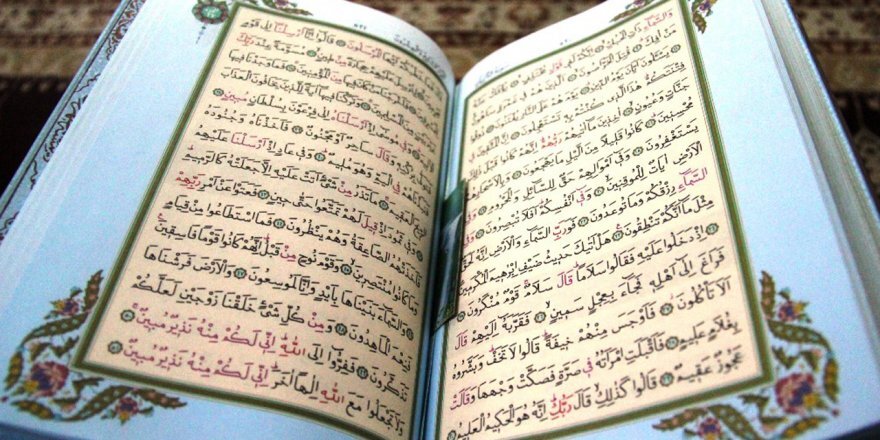 وَالسَّمَاءِ ذَاتِ الْحُبُكِ ۝ اِنَّكُمْ لَفِى قَوْلٍ مُخْتَلِفٍ ۝ يُؤْفَكُ عَنْهُ
مَنْ اُفِكَ ۝ قُتِلَ الْخَرَّاصُونَ ۝ اَلَّذِينَ هُمْ فِى غَمْرَةٍ سَاهُونَ ۝
يَسْئَلُونَ اَيَّانَ يَوْمُ الدِّينِ ۝ يَوْمَ هُمْ عَلَى النَّارِ يُفْتَنُونَ ۝ ذُوقُوا
فِتْنَتَكُمْ هٰذَا الَّذِى كُنْتُمْ بِهِ تَسْتَعْجِلُونَ ۝ اِنَّ الْمُتَّقِينَ فِى
جَنَّاتٍ وَعُيُونٍ ۝ اٰخِذِينَ مَا اٰتٰيهُمْ رَبُّهُمْ اِنَّهُمْ كَانُوا قَبْلَ ذٰلِكَ
مُحْسِنِينَ ۝ كَانُوا قَلِيلًا مِنَ الَّيْلِ مَا يَهْجَعُونَ ۝ وَبِالْاَسْحَارِ هُمْ
يَسْتَغْفِرُونَ ۝ وَفِى اَمْوَالِهِمْ حَقٌّ لِلسَّائِلِ وَالْمَحْرُومِ ۝ وَفِى
الْاَرْضِ اٰيَاتٌ لِلْمُوقِنِينَ ۝ وَفِى اَنْفُسِكُمْ اَفَلَا تُبْصِرُونَ ۝ وَفِى
السَّمَاءِ رِزْقُكُمْ وَمَا تُوعَدُونَ ۝ فَوَرَبِّ السَّمَاءِ وَالْاَرْضِ اِنَّهُ لَحَقٌّ
مِثْلَ مَا اَنَّكُمْ تَنْطِقُونَ ۝ هَلْ اَتٰيكَ حَدِيثُ ضَيْفِ اِبْرٰهِيمَ الْمُكْرَمِينَ ۝
اِذْ دَخَلُوا عَلَيْهِ فَقَالُوا سَلَامًا قَالَ سَلَامٌ قَوْمٌ مُنْكَرُونَ ۝
فَرَاغَ اِلٰى اَهْلِهِ فَجَاءَ بِعِجْلٍ سَمِينٍ ۝ فَقَرَّبَهُ اِلَيْهِمْ قَالَ
اَلَا تَاْكُلُونَ ۝ فَاَوْجَسَ مِنْهُمْ خِيفَةً قَالُوا لَا تَخَفْ وَبَشَّرُوهُ
بِغُلَامٍ عَلِيمٍ ۝ فَاَقْبَلَتِ امْرَاَتُهُ فِى صَرَّةٍ فَصَكَّتْ وَجْهَهَا وَقَالَتْ
عَجُوزٌ عَقِيمٌ ۝ قَالُوا كَذٰلِكِ قَالَ رَبُّكِ اِنَّهُ هُوَ الْحَكِيمُ الْعَلِيمُ
قَالَ فَمَا خَطْبُكُمْ اَيُّهَا الْمُرْسَلُونَ ۝ قَالُوا اِنَّا اُرْسِلْنَا اِلٰى قَوْمٍ
مُجْرِمِينَ ۝ لِنُرْسِلَ عَلَيْهِمْ حِجَارَةً مِنْ طِينٍ ۝ مُسَوَّمَةً عِنْدَ رَبِّكَ
لِلْمُسْرِفِينَ ۝ فَاَخْرَجْنَا مَنْ كَانَ فِيهَا مِنَ الْمُؤْمِنِينَ ۝ فَمَا وَجَدْنَا فِيهَا
غَيْرَ بَيْتٍ مِنَ الْمُسْلِمِينَ ۝ وَتَرَكْنَا فِيهَا اٰيَةً لِلَّذِينَ يَخَافُونَ الْعَذَابَ
الْاَلِيمَ ۝ وَفِى مُوسٰى اِذْ اَرْسَلْنَاهُ اِلٰى فِرْعَوْنَ بِسُلْطَانٍ مُبِينٍ ۝
فَتَوَلّٰى بِرُكْنِهِ وَقَالَ سَاحِرٌ اَوْ مَجْنُونٌ ۝ فَاَخَذْنَاهُ وَجُنُودَهُ
فَنَبَذْنَاهُمْ فِى الْيَمِّ وَهُوَ مُلِيمٌ ۝ وَفِى عَادٍ اِذْ اَرْسَلْنَا عَلَيْهِمُ
الرِّيحَ الْعَقِيمَ ۝ مَا تَذَرُ مِنْ شَىْءٍ اَتَتْ عَلَيْهِ اِلَّا جَعَلَتْهُ كَالرَّمِيمِ ۝
وَفِى ثَمُودَ اِذْ قِيلَ لَهُمْ تَمَتَّعُوا حَتّٰى حِينٍ ۝ فَعَتَوْا عَنْ اَمْرِ رَبِّهِمْ
فَاَخَذَتْهُمُ الصَّاعِقَةُ وَهُمْ يَنْظُرُونَ ۝ فَمَا اسْتَطَاعُوا مِنْ قِيَامٍ
وَمَا كَانُوا مُنْتَصِرِينَ ۝ وَقَوْمَ نُوحٍ مِنْ قَبْلُ اِنَّهُمْ كَانُوا قَوْمًا فَاسِقِينَ ۝
وَالسَّمَاءَ بَنَيْنَاهَا بِاَيْدٍ وَاِنَّا لَمُوسِعُونَ ۝ وَالْاَرْضَ فَرَشْنَاهَا
فَنِعْمَ الْمَاهِدُونَ ۝ وَمِنْ كُلِّ شَىْءٍ خَلَقْنَا زَوْجَيْنِ لَعَلَّكُمْ
تَذَكَّرُونَ ۝ فَفِرُّوا اِلَى اللّٰهِ اِنِّى لَكُمْ مِنْهُ نَذِيرٌ مُبِينٌ ۝
وَلَا تَجْعَلُوا مَعَ اللّٰهِ اِلٰهًا اٰخَرَ اِنِّى لَكُمْ مِنْهُ نَذِيرٌ مُبِينٌ ۝